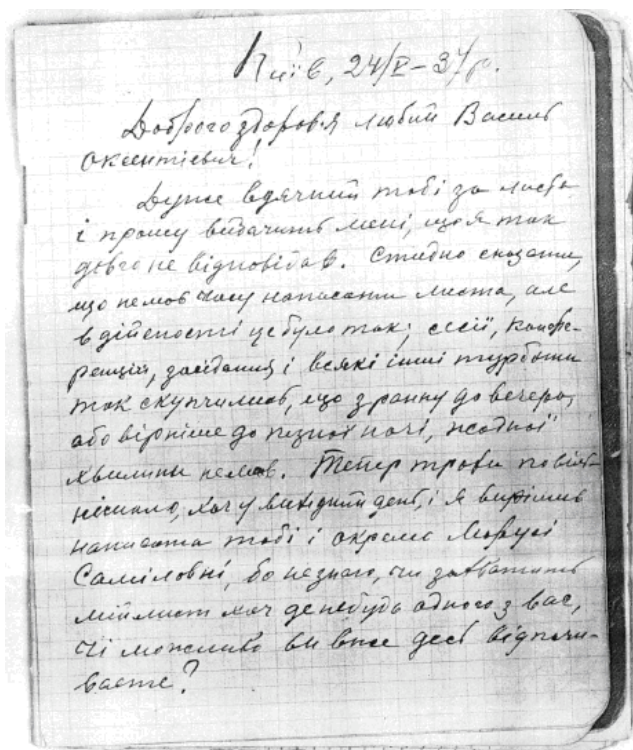 Київ, 24/V-37р.
Доброго здоров'я любий Василь
Оксентієвич!
Дуже вдячний тобі за листа
і прошу вибачить мені, що я так
довго не відповідав. Стидно сказати,
що не мав часу написати листа, але
в дійсності це було так; сесії, конфе-
ренції, засідання і всякі інші турботи
так скупчились, що з ранку до вечора,
або вірніше до пізної ночі, жодної
хвилини не мав. Тепер трохи повіль-
нішало, хоч у вихідний день, і я вирішив
написати тобі і окремо Марусі
Самiловні, бо не знаю, чи захватить
мій лист хоч де небудь одного з вас,
чи можливо ви вже десь відпочи-
ваєте?